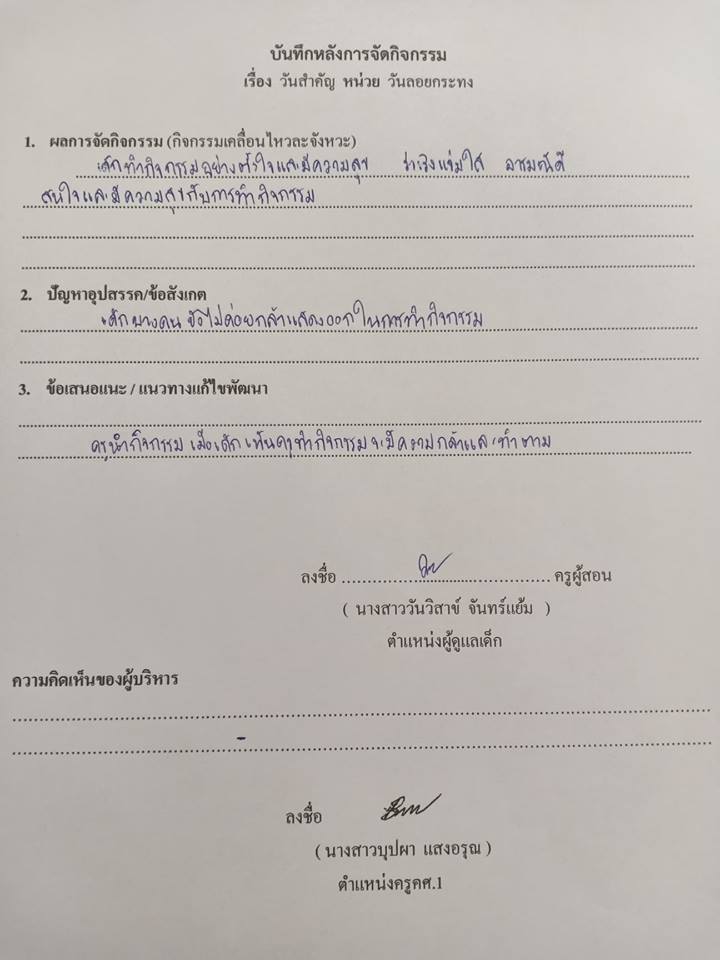 บันทึกหลังการจัดกิจกรรม
เรื่อง วันสำคัญ หน่วย วันลอยกระทง
1. ผลการจัดกิจกรรม (กิจกรรมเคลื่อนไหวละจังหวะ)
เด็กทำกิจกรรมอย่างตั้งใจและมีความสุข ร่าเริงแจ่มใส อารมณ์ดี
สนใจและมีความสุขกับการทำกิจกรรม
2. ปัญหาอุปสรรค/ข้อสังเกต
เด็กบางคนยังไม่ค่อยกล้าแสดงออกในการทำกิจกรรม
3. ข้อเสนอแนะ / แนวทางแก้ไขพัฒนา
ครูนำกิจกรรม เมื่อเด็กเห็นครูทำกิจกรรมจะมีความกล้าและทำตาม
ลงชื่อ ครูผู้สอน
( นางสาววันวิสาข์ จันทร์แย้ม )
ตำแหน่งผู้ดูแลเด็ก
ความคิดเห็นของผู้บริหาร
-
ลงชื่อ
( นางสาวบุปผา แสงอรุณ )
ตำแหน่งครูคศ.1